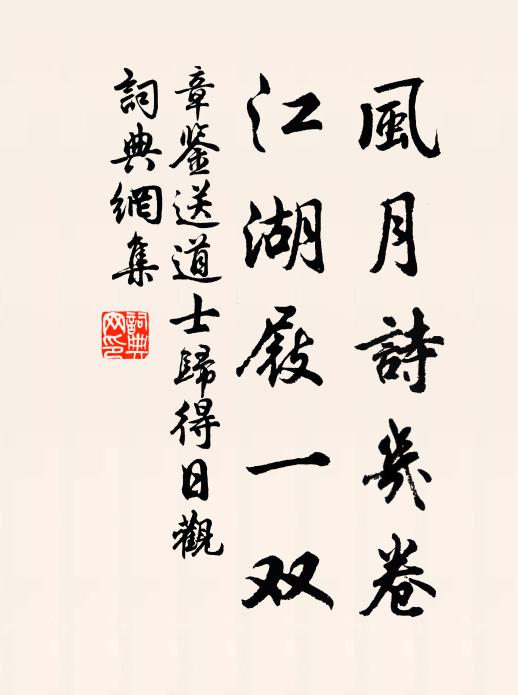 風月詩幾卷
江湖屐一双
章鉴送道士歸得日觀
詞典網集
詞典網印